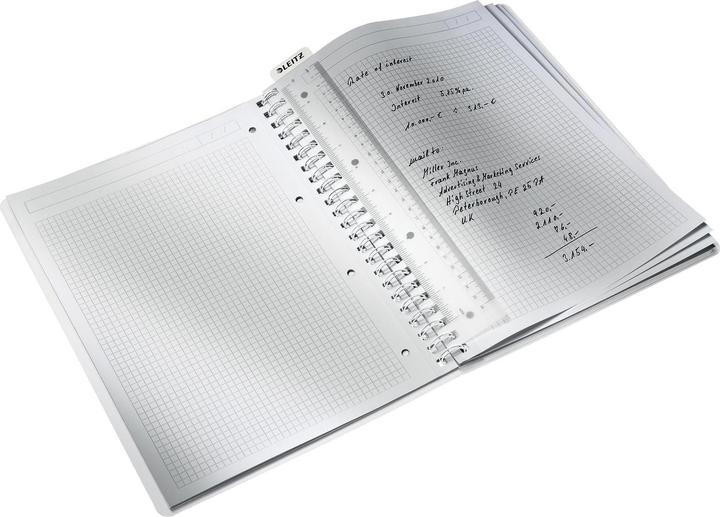 LEITZ
Rate of interest
30. November 2010
Interest 5,15% pa.
10.000,- € < 313,- €
mail to:
Miller Inc.
Frank Magnus
Advertising & Marketing Services
High Street 24
Peterborough, PE 25 7A
UK
920,-
2.110,-
76,-
48,-
3.154,-